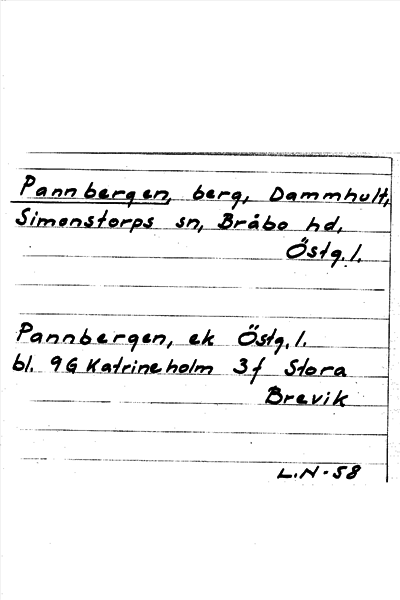 Pannbergen, berg, Dammhult,
Simonstorps sn, Bråbo hd,
Östg.l.
Pannbergen, ek Östg.l.
bl. 9G Katrineholm 3f Stora
Brevik
L.N-58